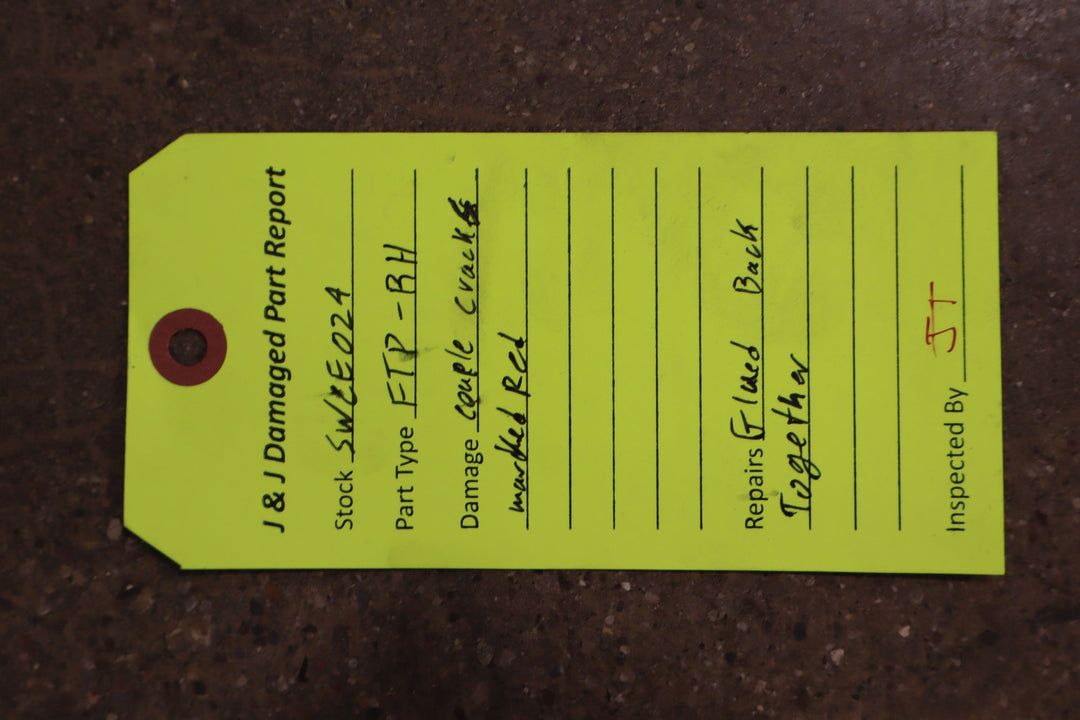 J & J Damaged Part Report
Stock SWEE024
Part Type FTP-RH
Damage couple cracks
marked Red
Repairs Glued Back
Together
Inspected By JT